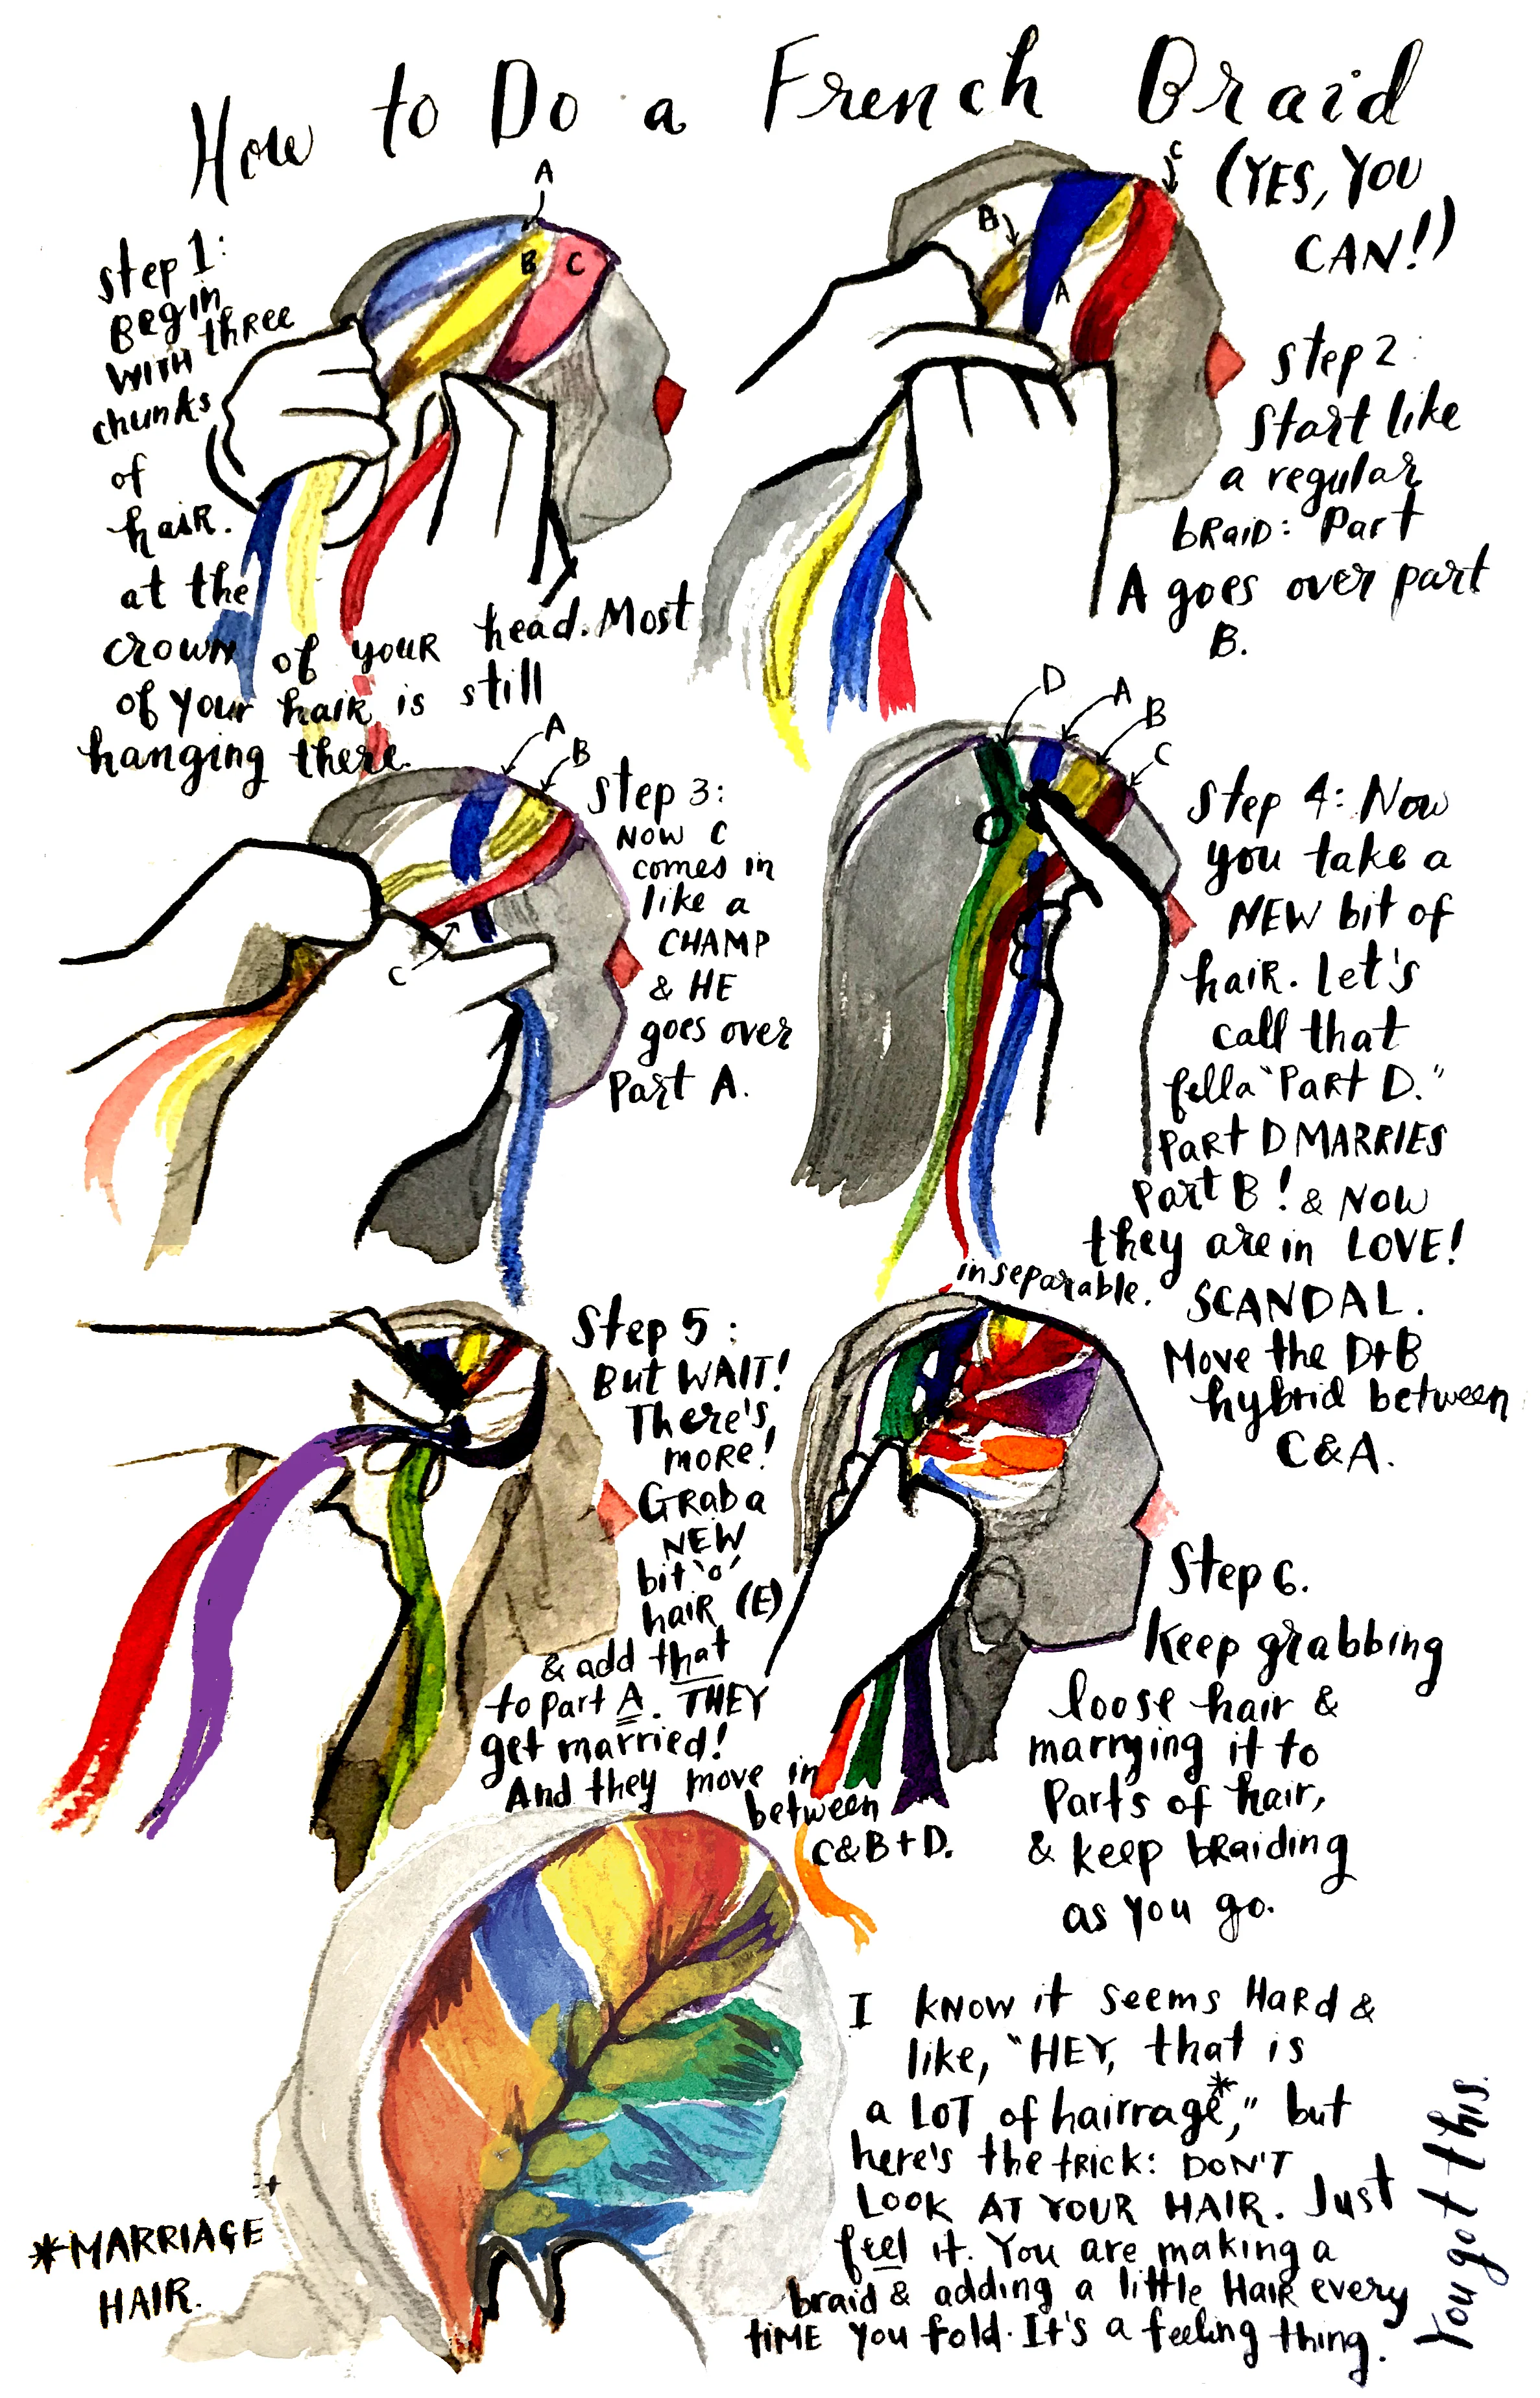 How to Do a French Braid
(YES, YOU
CAN!)
A
B
C
Step 1:
Begin
WITH three
chunks
of
haiR.
at the
crown of youR head. Most
of your haiR is still
hanging there.
C
B
A
Step 2:
Start like
a regular
bRaiD: Part
A goes over part
B.
A
B
C
Step 3:
NOW C
comes in
like a
CHAMP
& HE
goes over
Part A.
D
A
B
C
Step 4: Now
you take a
NEW bit of
haiR. Let's
call that
fella "Part D."
Part D MARRIES
Part B! & NOW
they are in LOVE!
inseparable. SCANDAL.
Move the D+B
hybrid between
C&A.
Step 5:
But WAIT!
There's
more!
Grab a
NEW
bit 'o'
haiR (E)
& add that
to part A. THEY
get married!
And they move in
between
C&B+D.
Step 6.
Keep grabbing
loose hair &
marrying it to
Parts of hair,
& keep bRaiding
as you go.
I KNOW it seems HaRd &
like, "HEY, that is
a LOT of hairrage*," but
here's the tRick: DON'T
LOOK AT YOUR HAIR. Just
feel it. You are making a
braid & adding a little HaiR every
tiME you fold. It's a feeling thing.
You got this.
*MARRIAGE
HAIR.